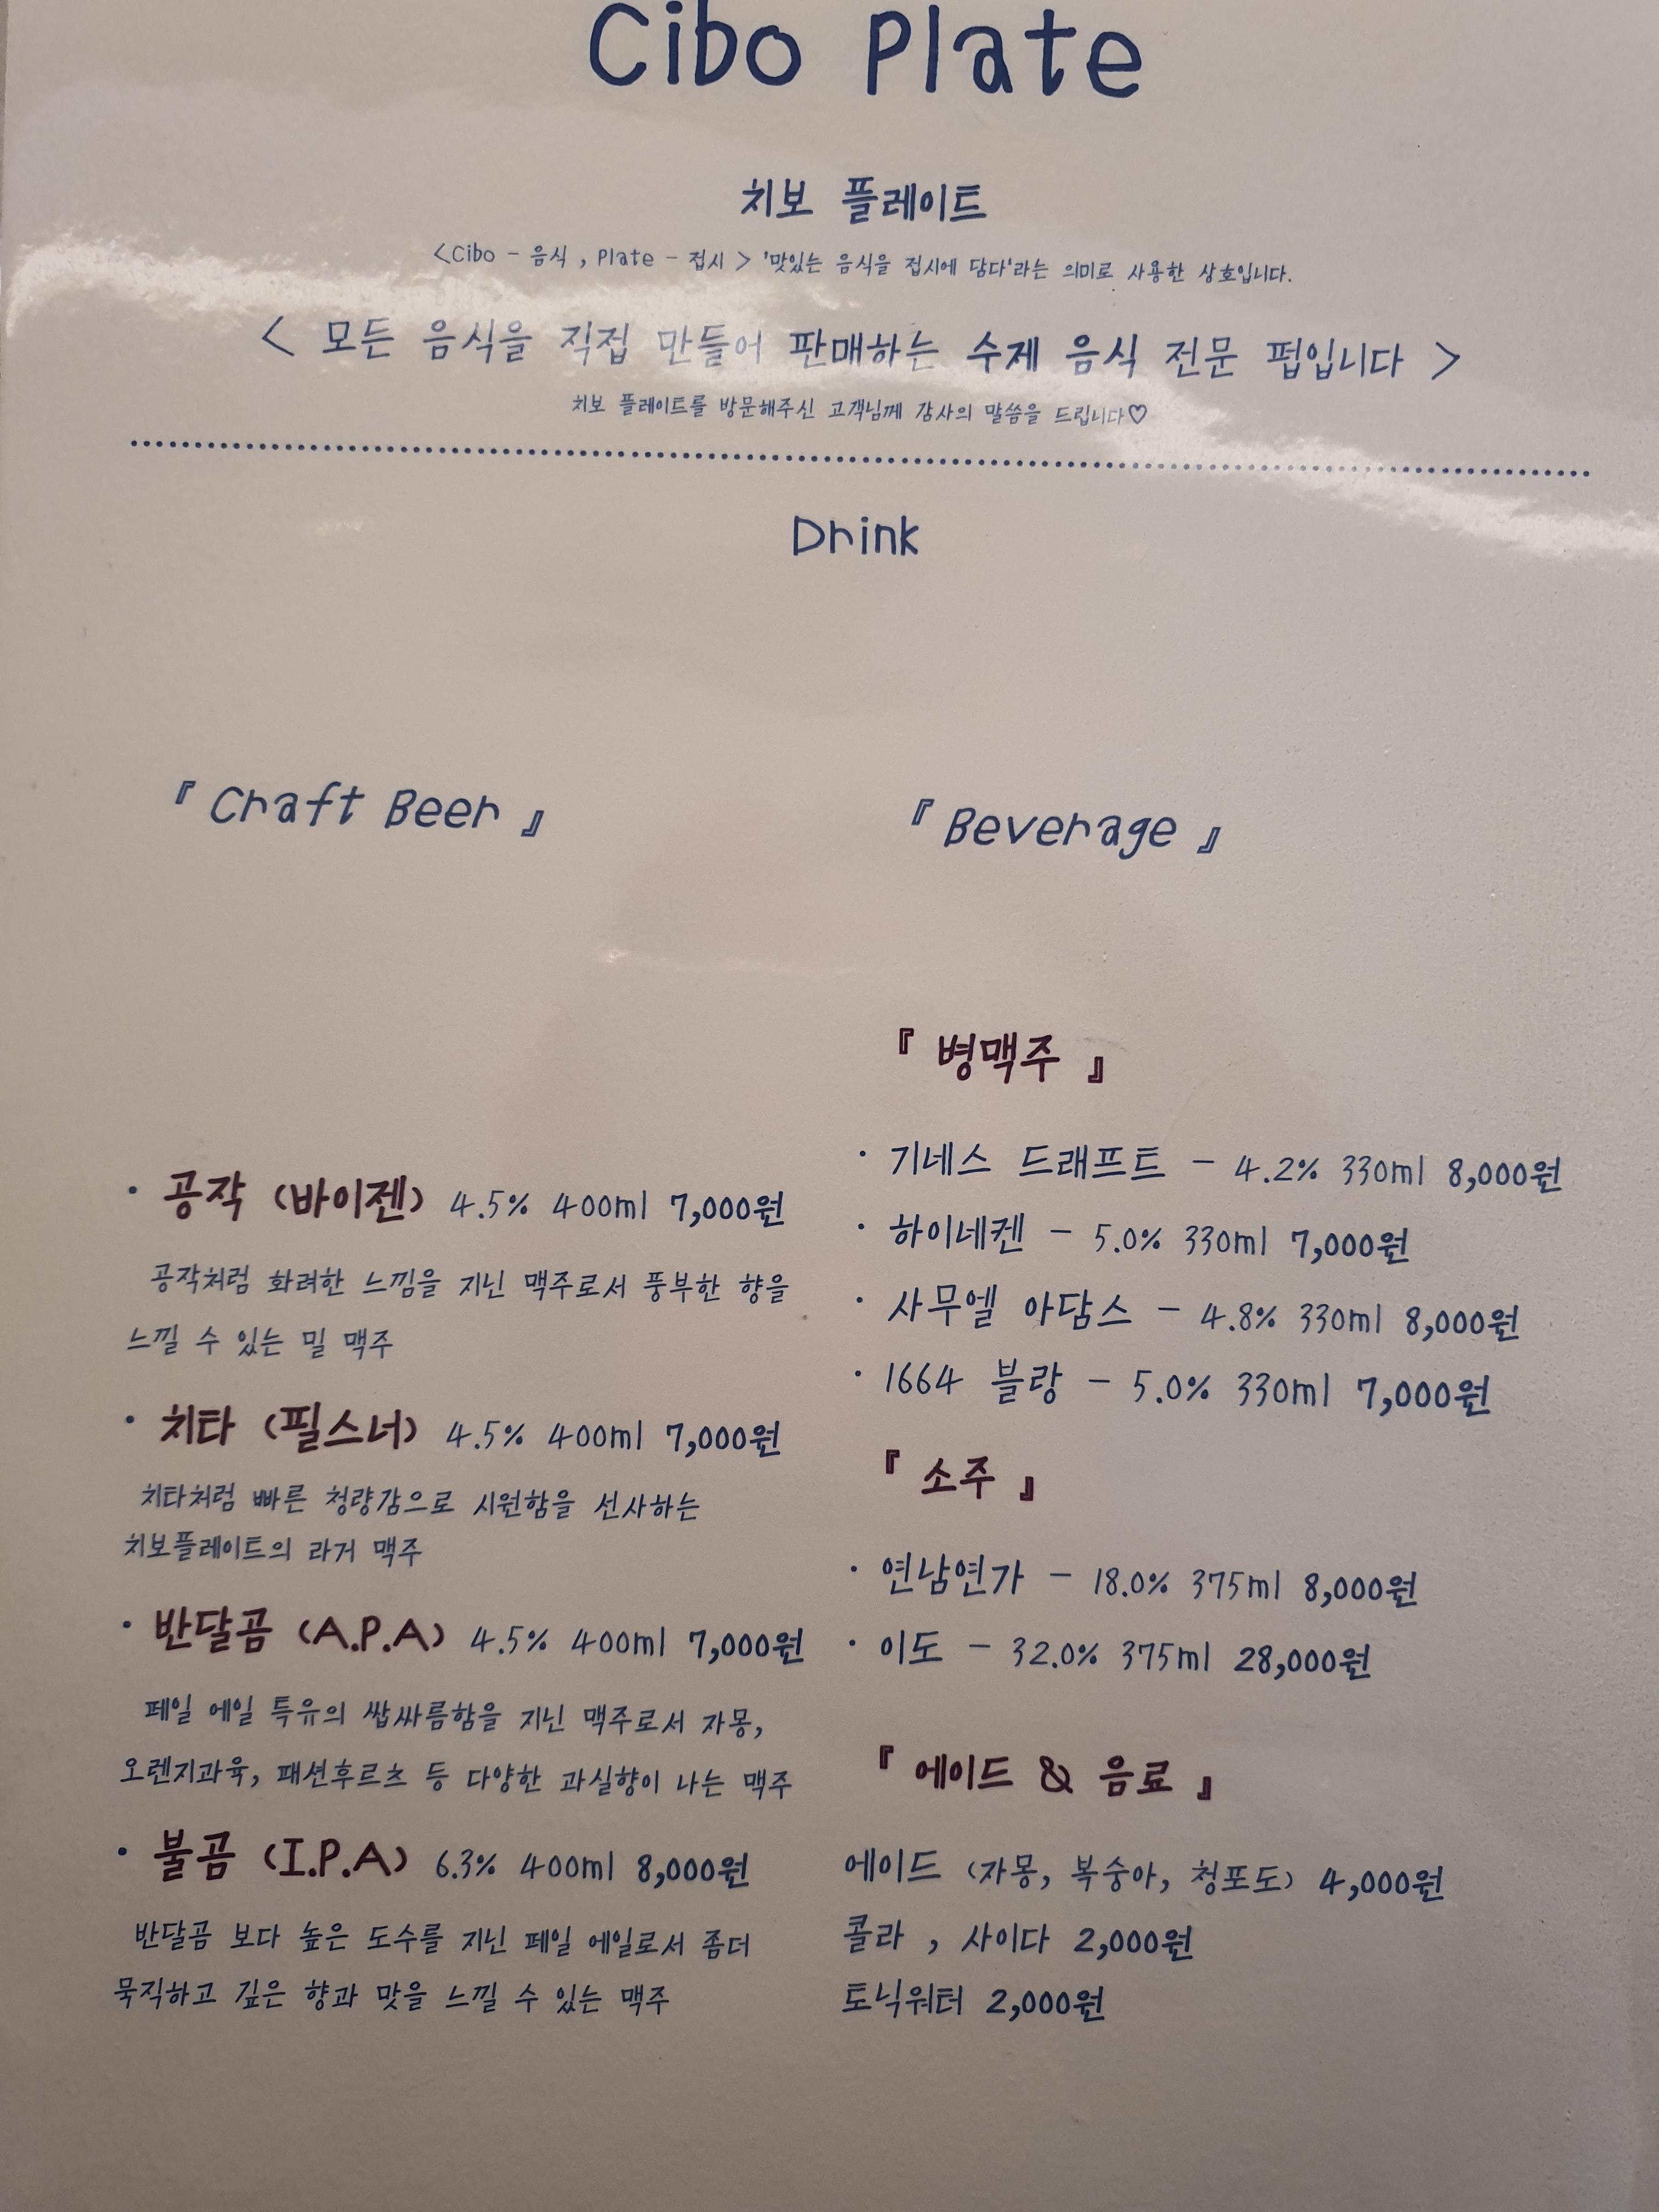 Cibo Plate
치보 플레이트
<Cibo - 음식 , Plate - 접시 > '맛있는 음식을 접시에 담다'라는 의미로 사용한 상호입니다.
< 모든 음식을 직접 만들어 판매하는 수제 음식 전문 펍입니다 >
치보 플레이트를 방문해주신 고객님께 감사의 말씀을 드립니다♡
Drink
『 Craft Beer 』
· 공작 (바이젠) 4.5% 400ml 7,000원
공작처럼 화려한 느낌을 지닌 맥주로서 풍부한 향을
느낄 수 있는 밀 맥주
· 치타 (필스너) 4.5% 400ml 7,000원
치타처럼 빠른 청량감으로 시원함을 선사하는
치보플레이트의 라거 맥주
· 반달곰 (A.P.A) 4.5% 400ml 7,000원
페일 에일 특유의 쌉싸름함을 지닌 맥주로서 자몽,
오렌지과육, 패션후르츠 등 다양한 과실향이 나는 맥주
· 불곰 (I.P.A) 6.3% 400ml 8,000원
반달곰 보다 높은 도수를 지닌 페일 에일로서 좀더
묵직하고 깊은 향과 맛을 느낄 수 있는 맥주
『 Beverage 』
『 병맥주 』
· 기네스 드래프트 - 4.2% 330ml 8,000원
· 하이네켄 - 5.0% 330ml 7,000원
· 사무엘 아담스 - 4.8% 330ml 8,000원
· 1664 블랑 - 5.0% 330ml 7,000원
『 소주 』
· 연남연가 - 18.0% 375ml 8,000원
· 이도 - 32.0% 375ml 28,000원
『 에이드 & 음료 』
에이드 (자몽, 복숭아, 청포도) 4,000원
콜라 , 사이다 2,000원
토닉워터 2,000원